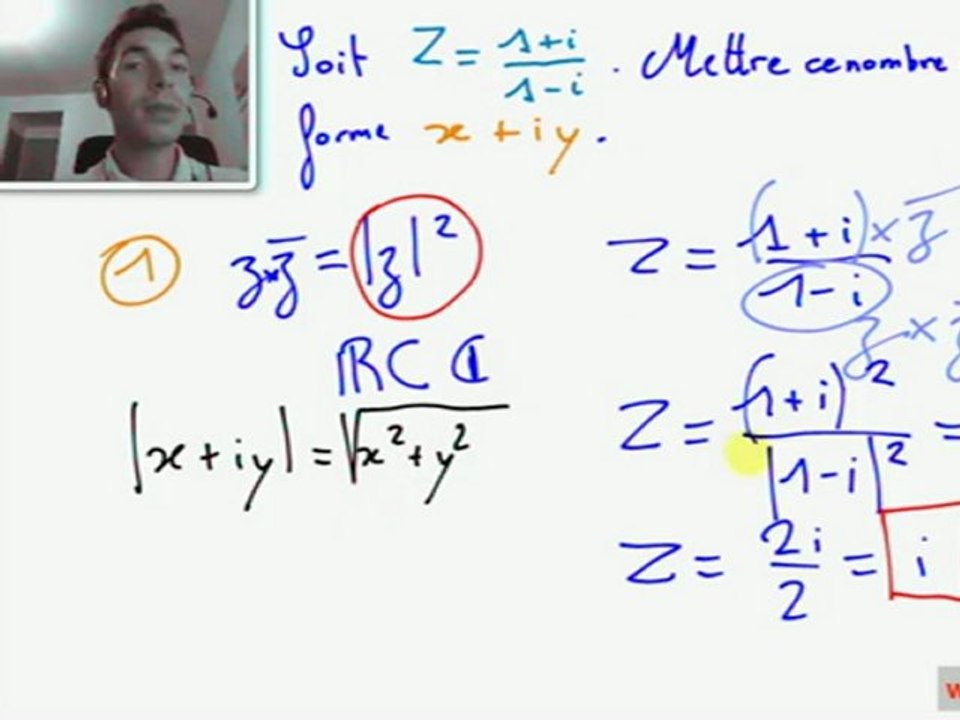 Soit Z = 1+i / 1-i . Mettre ce nombre
forme x + iy .
1 z×z̄ = |z|²
ℝ ⊂ ℂ
|x + iy| = √x² + y²
Z = (1 + i) × z̄ / 1 - i z ×
Z = (1+i)² / |1-i|² =
Z = 2i / 2 = i